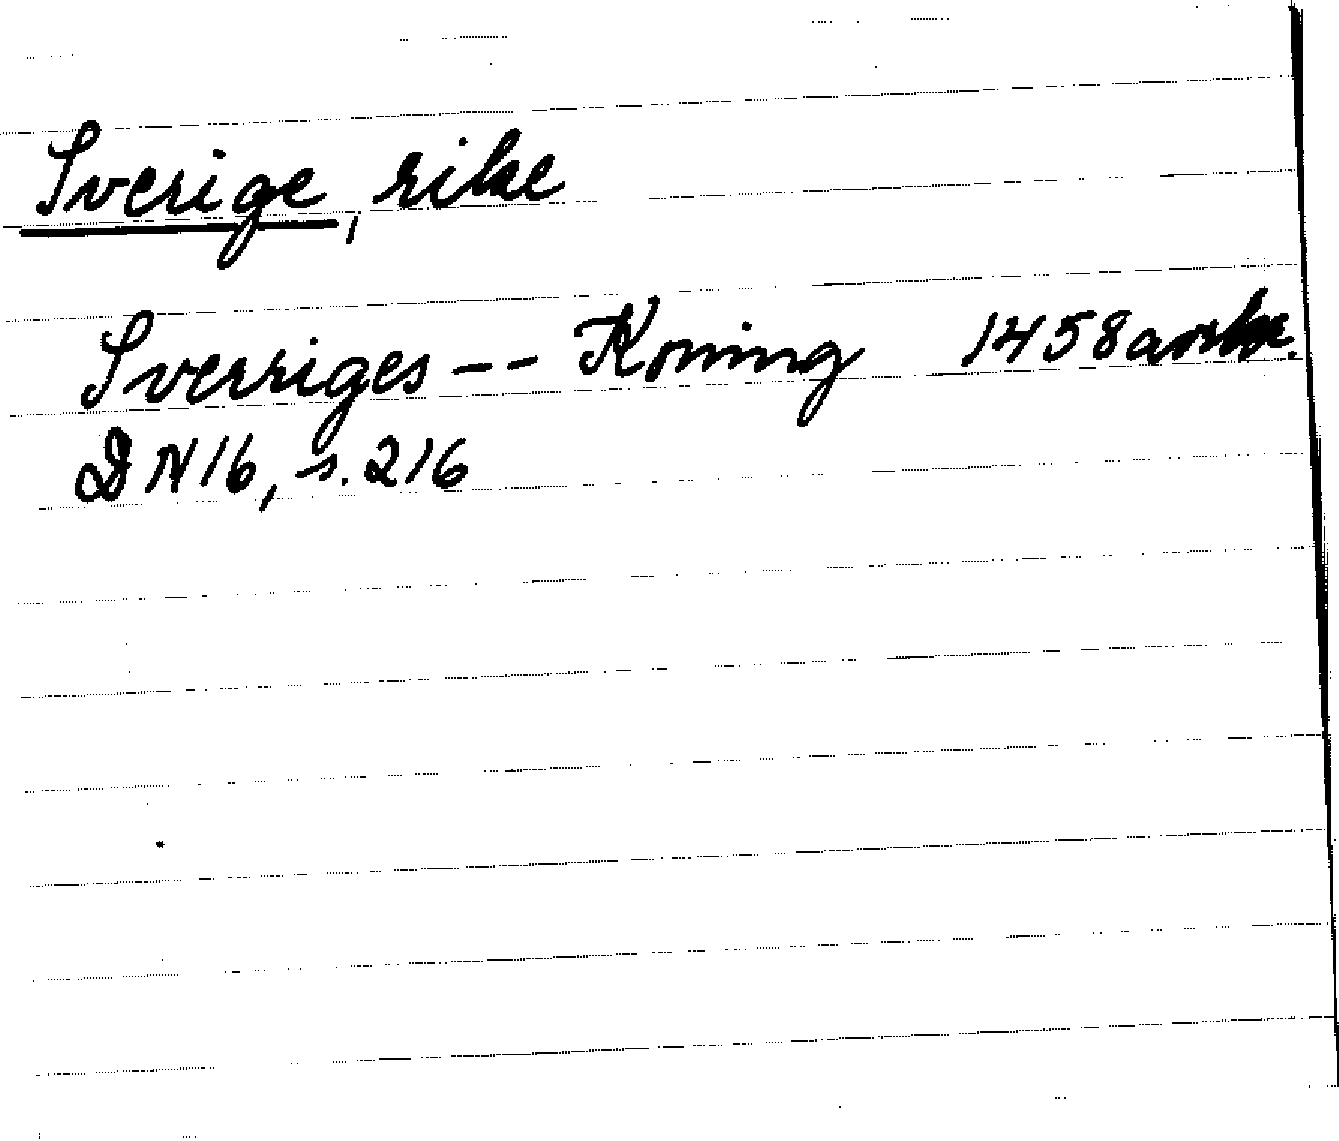 Sverige, rike
Sverriges -- Koning 1458 avskr.
DN16, s. 216